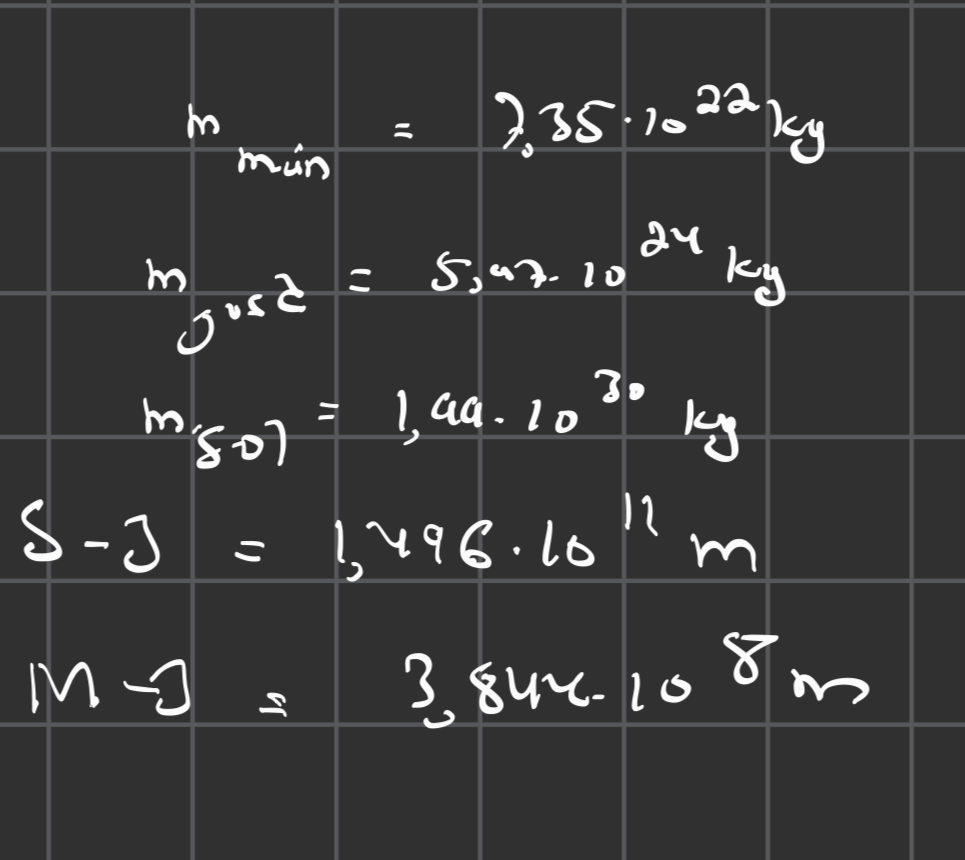 m mån = 7,35 · 10^22 kg
m jord = 5,97 · 10^24 kg
m sol = 1,99 · 10^30 kg
S - J = 1,496 · 10^11 m
M - J = 3,844 · 10^8 m